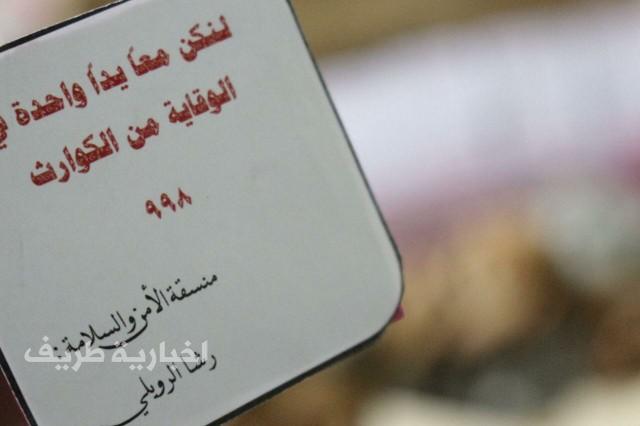 لنكن معاً يداً واحدة في
الوقاية من الكوارث
٩٩٨
منسقة الأمن والسلامة :
رشا الرويلي
اخبارية طريف